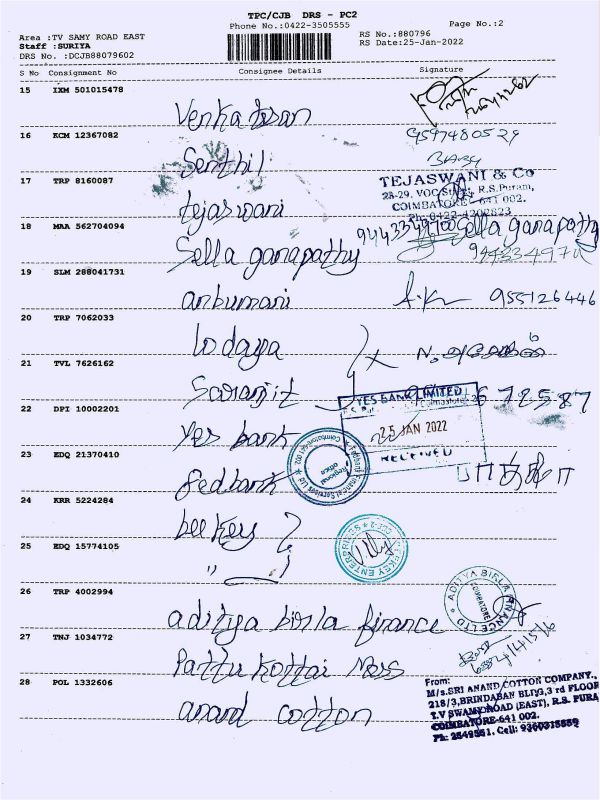 TPC/CJB DRS - PC2
Phone No.:0422-3505555
Page No.:2
Area :TV SAMY ROAD EAST
Staff :SURIYA
DRS No. :DCJB88079602
RS No.:880796
RS Date:25-Jan-2022
S No Consignment No Consignee Details Signature
15 IXM 501015478
Venkatesan
16 KCM 12367082
9597480529
Senthil
Baby
17 TRP 8160087
TEJASWANI & Co
28-29, VOC Street, R.S.Puram,
COIMBATORE - 641 002.
Ph:0422-4202823
tejaswani
18 MAA 562704094
Sella ganapathy
Sella ganapathy
19 SLM 288041731
anbumani
A.K 955126446
20 TRP 7062033
lodaya
21 TVL 7626162
Sooranjit
672587
22 DPI 10002201
YES BANK LIMITED
25 JAN 2022
RECEIVED
Yes bank
23 EDQ 21370410
Financial Services Ltd
Coimbatore-641 002
Regional Office
fedbank
24 KRR 5224284
bee key
25 EDQ 15774105
BEEKEY ENTERPRISES
CBE-2
"
26 TRP 4002994
ADITYA BIRLA FINANCE LTD
COIMBATORE
aditya birla finance
27 TNJ 1034772
Pattukottai Mess
28 POL 1332606
anand cotton
From:
M/s.SRI ANAND COTTON COMPANY.,
218/3,BRINDABAN BLDG,3 rd FLOOR
T.V SWAMY ROAD (EAST), R.S. PURA
COIMBATORE-641 002.
Ph: 2549551. Cell: 9360315559